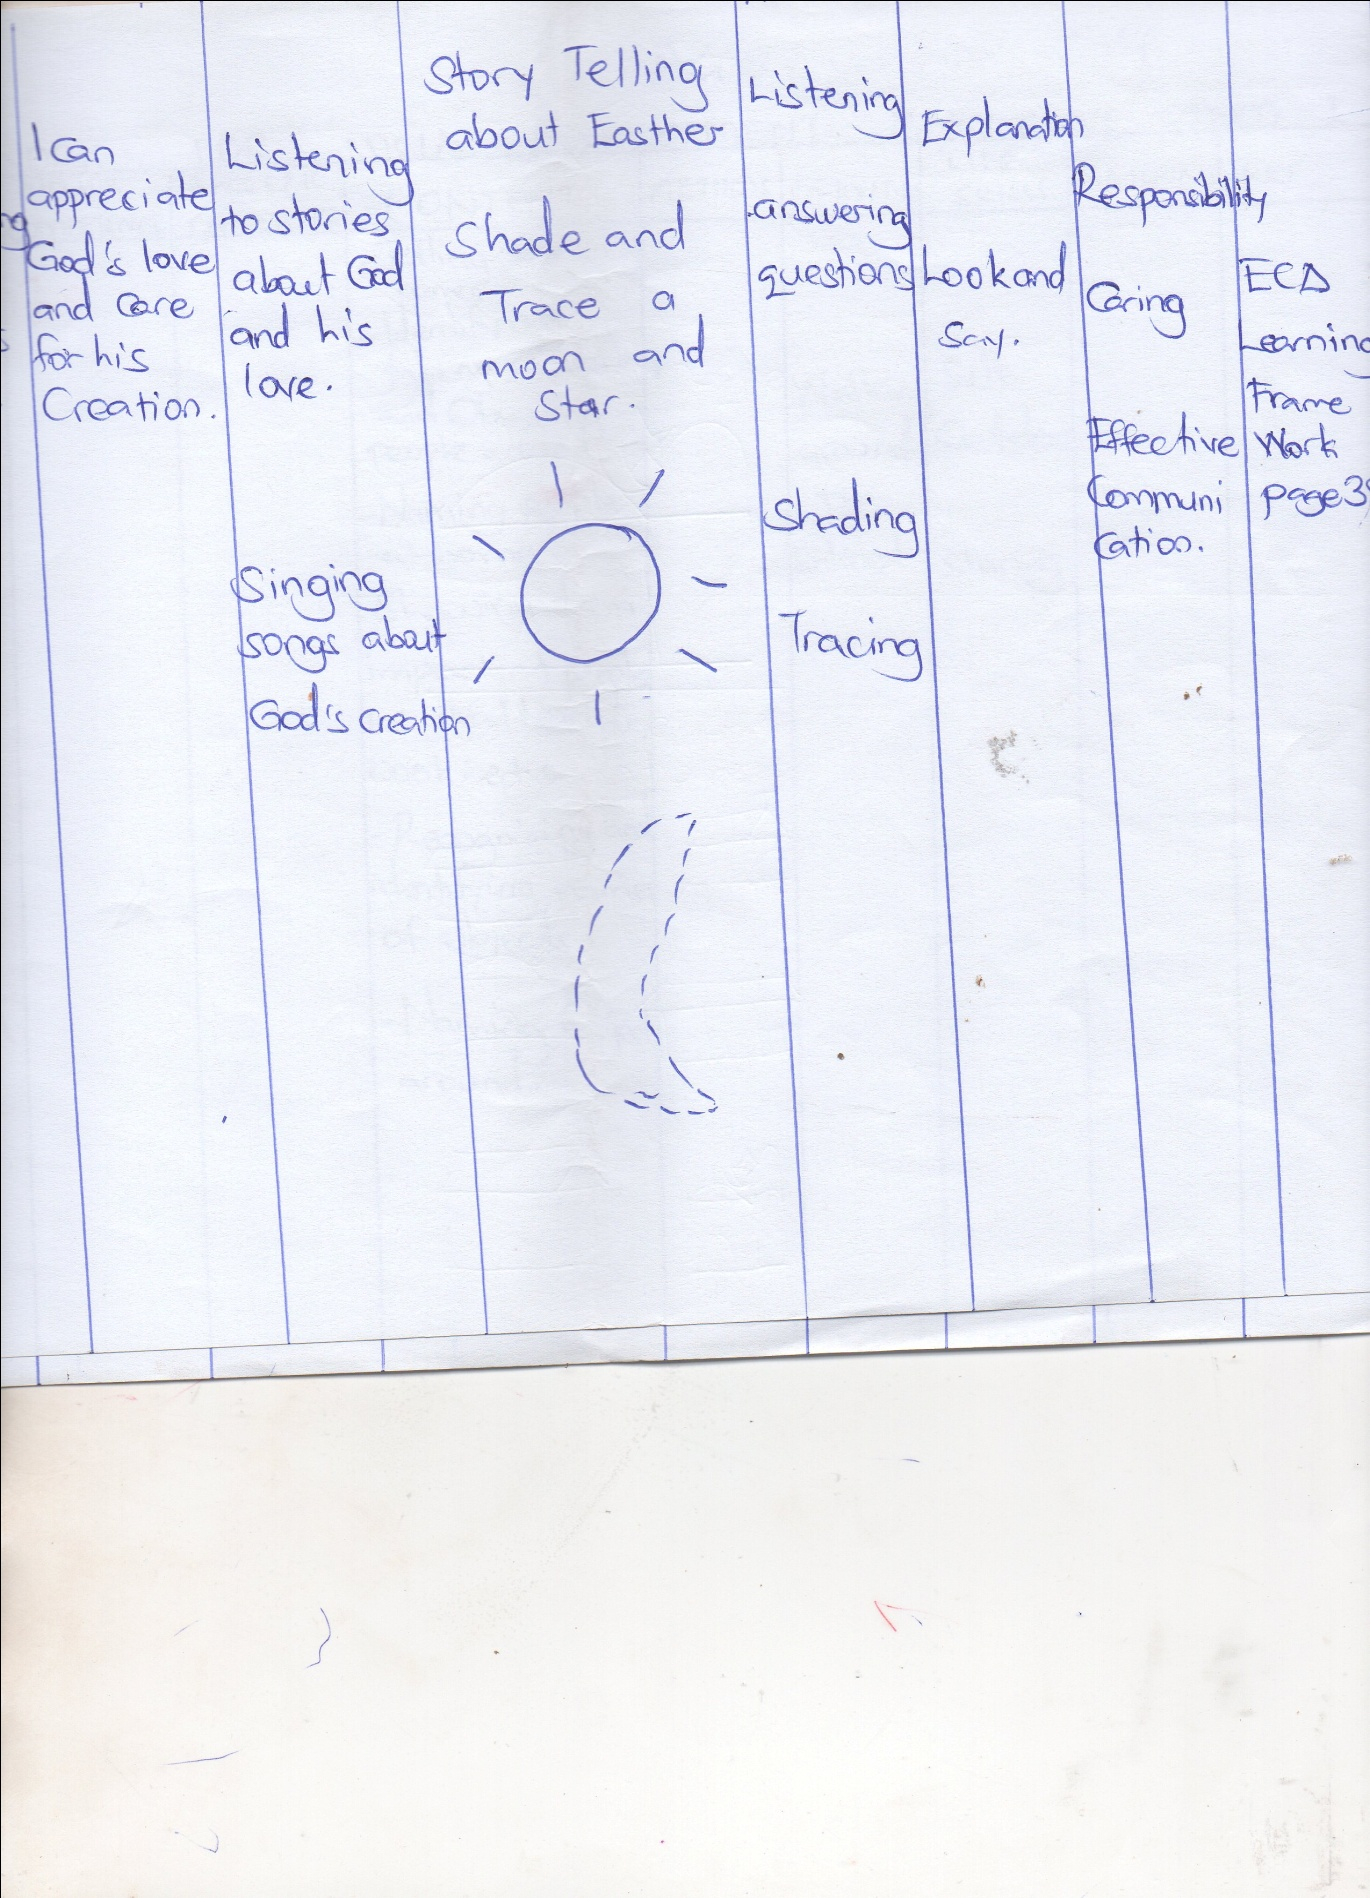 I can
appreciate
God's love
and care
for his
Creation.
Listening
to stories
about God
and his
love.
Singing
songs about
God's creation
Story Telling
about Easther
Shade and
Trace a
moon and
Star.
Listening
answering
questions
Shading
Tracing
Explanation
Look and
Say.
Responsibility
Caring
Effective
Communi
cation.
ECD
Learning
Frame
Work